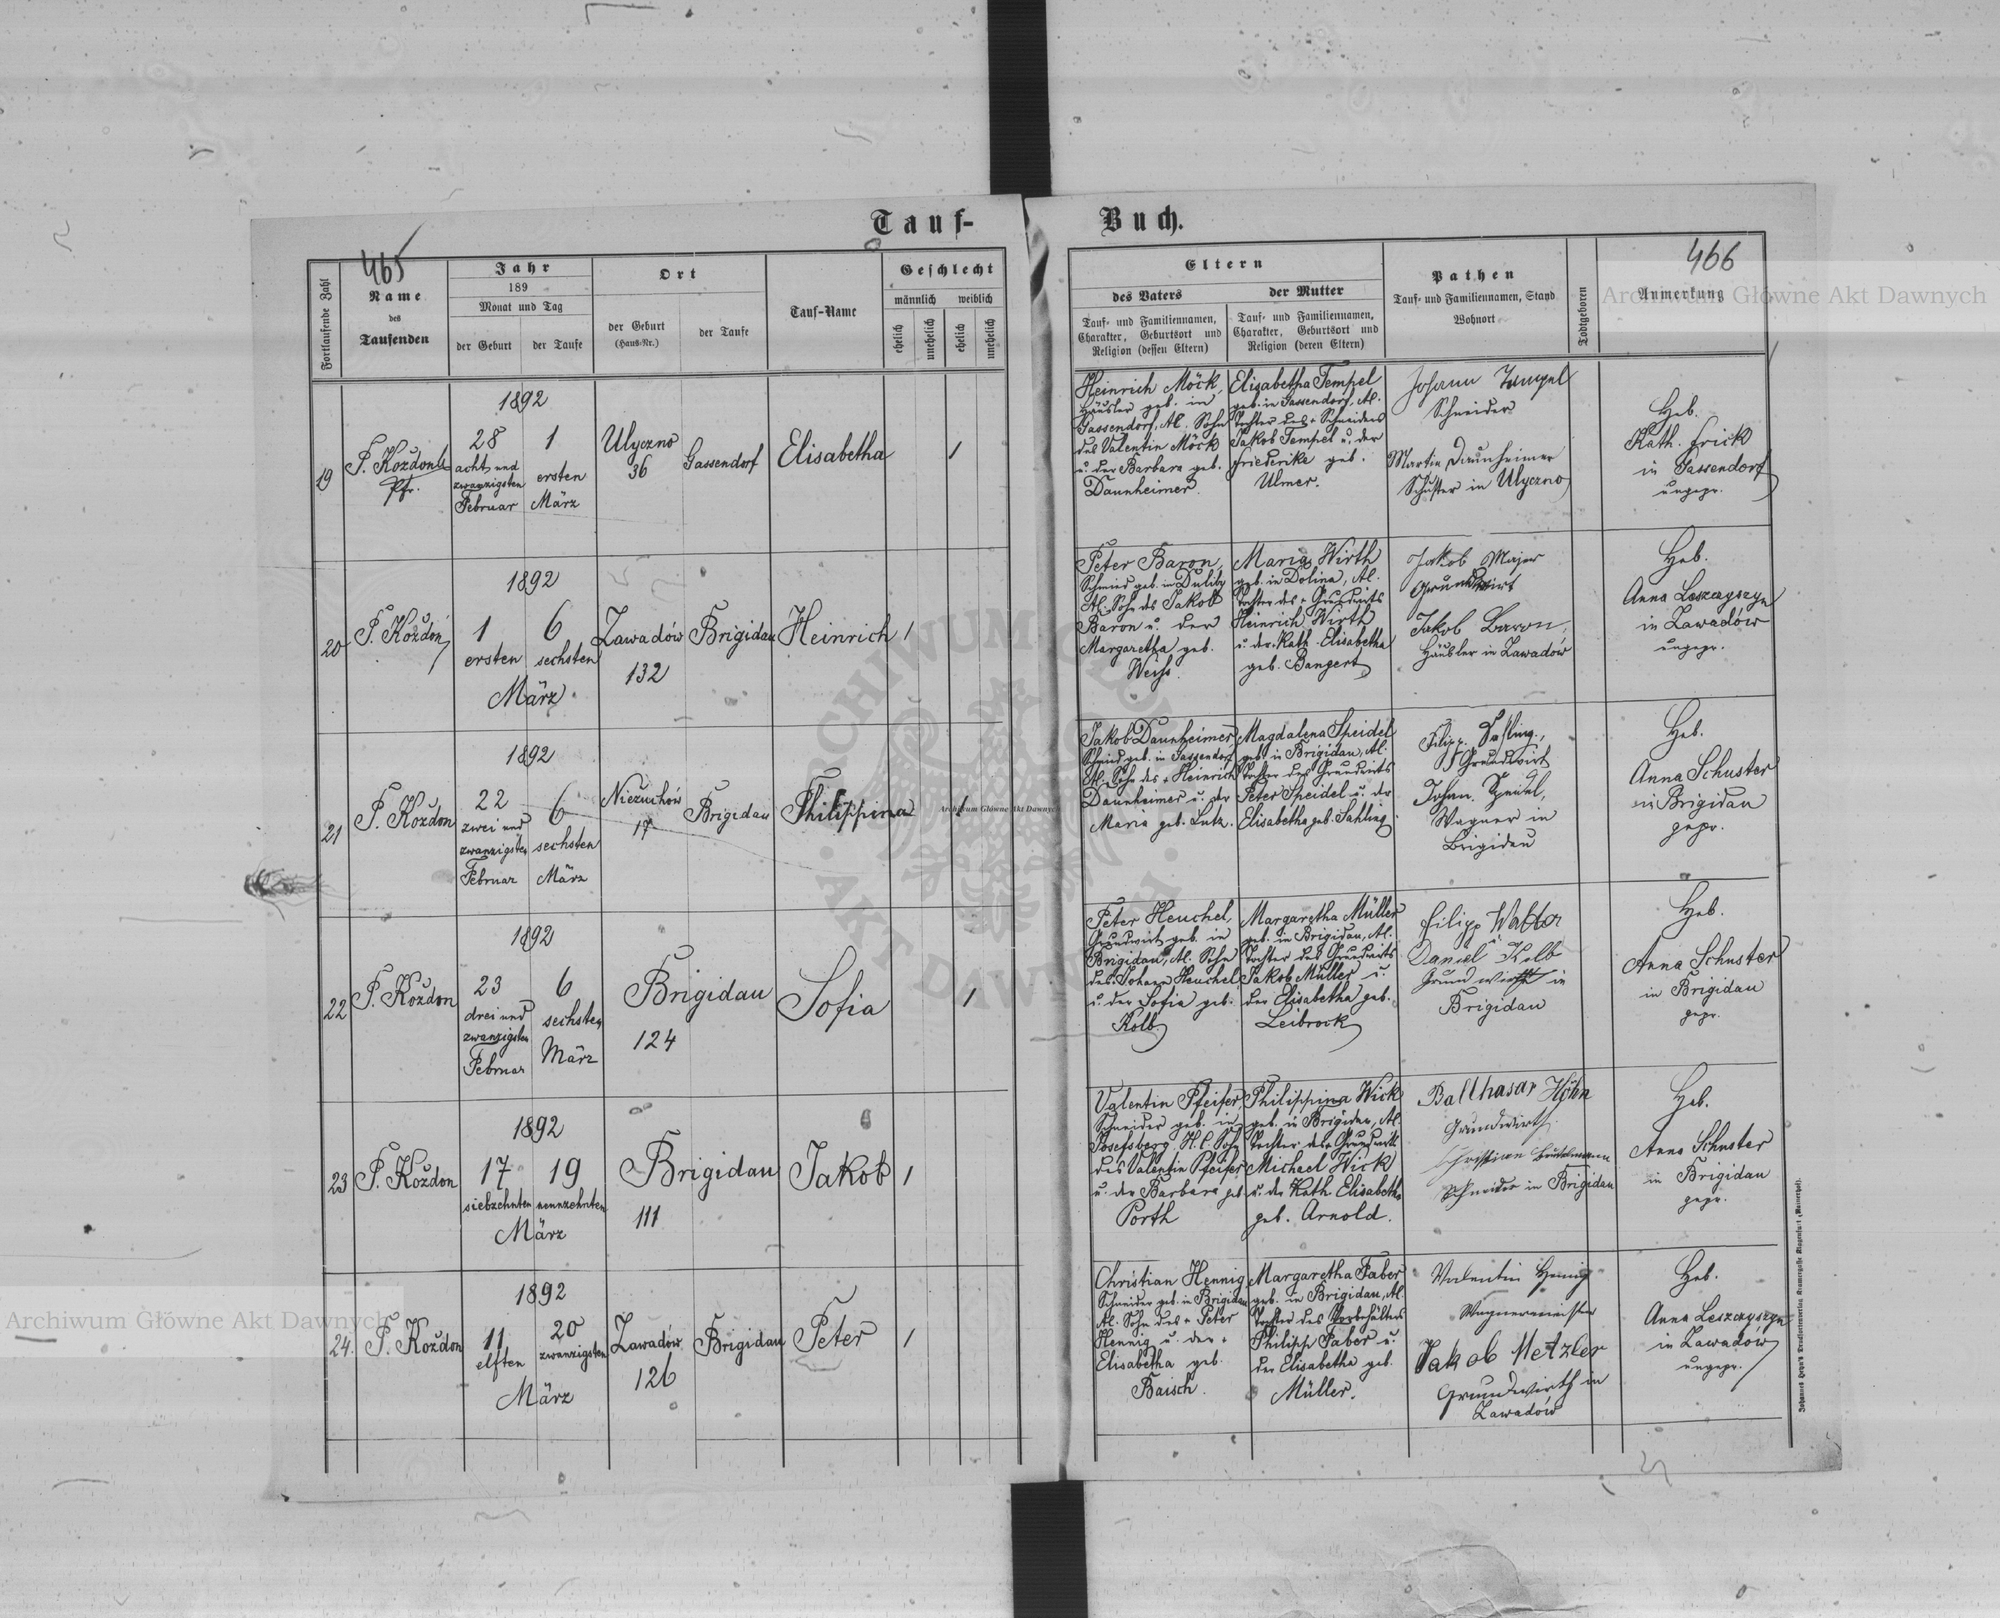 Tauf-
Buch.
465
466
Fortlaufende Zahl
Name
des
Taufenden
Jahr
189
Monat und Tag
der Geburt
der Taufe
Ort
der Geburt
(Haus-Nr.)
der Taufe
Tauf-Name
Geschlecht
männlich
weiblich
ehelich
unehelich
ehelich
unehelich
Eltern
des Vaters
der Mutter
Tauf- und Familiennamen,
Charakter, Geburtsort und
Religion (dessen Eltern)
Tauf- und Familiennamen,
Charakter, Geburtsort und
Religion (deren Eltern)
Pathen
Tauf- und Familiennamen, Stand
Wohnort
Todtgeboren
Anmerkung
19
F. Kozdon
Pfr.
1892
28
acht und
zwanzigsten
Februar
1
ersten
März
Ulyczno
36
Gassendorf
Elisabetha
1
Heinrich Möck,
Häusler geb. in
Gassendorf, Al. Sohn
des Valentin Möck
u. der Barbara geb.
Daunheimer.
Elisabetha Tempel
geb. in Gassendorf, Al.
Tochter des + Schneiders
Jakob Tempel u. der
Friederike geb.
Ulmer.
Johann Tempel
Schneider
Martin Daunheimer
Schuster in Ulyczno
Heb.
Kath. Frick
in Gassendorf
ungepr.
20
F. Kozdon
1892
1
ersten
6
sechsten
März
Zawadów
132
Brigidau
Heinrich
1
Peter Baron,
Schmied geb. in Duliby
Al. Sohn des Jakob
Baron u. der
Margaretha geb.
Weiss.
Maria Wirth
geb. in Dolina, Al.
Tochter des + Grundwirts
Heinrich Wirth
u. der Kath. Elisabetha
geb. Bangert
Jakob Majer
Grundwirt
Jakob Baron,
Häusler in Zawadów
Heb.
Anna Leszczyszyn
in Zawadów
ungepr.
21
F. Kozdon
1892
22
zwei und
zwanzigsten
Februar
6
sechsten
März
Niezuchów
17
Brigidau
Philippina
1
Jakob Daunheimer
Schmied geb. in Gassendorf
Al. Sohn des + Heinrich
Daunheimer u. der
Maria geb. Lutz.
Magdalena Speidel
geb. in Brigidau, Al.
Tochter des Grundwirts
Peter Speidel u. der
Elisabetha geb. Sahling
Filipp Sahling,
Grundwirt
Johan. Speidel,
Wagner in
Brigidau
Heb.
Anna Schuster
in Brigidau
gepr.
22
F. Kozdon
1892
23
drei und
zwanzigsten
Februar
6
sechsten
März
Brigidau
124
Sofia
1
Peter Heuchel,
Grundwirt geb. in
Brigidau, Al. Sohn
des Johann Heuchel
u. der Sofia geb.
Kolb
Margaretha Müller
geb. in Brigidau, Al.
Tochter des Grundwirts
Jakob Müller u.
der Elisabetha geb.
Leibrock
Filipp Walter
u.
Daniel Kolb
Grundwirth in
Brigidau
Heb.
Anna Schuster
in Brigidau
gepr.
23
F. Kozdon
1892
17
siebzehnten
19
neunzehnten
März
Brigidau
111
Jakob
1
Valentin Pfeifer,
Schneider geb. in
Josefsberg H.C. Sohn
des Valentin Pfeifer
u. der Barbara geb.
Porth
Philippina Wick
geb. in Brigidau, Al.
Tochter des Grundwirts
Michael Wick
u. der Kath. Elisabetha
geb. Arnold.
Balthasar Höhn
Grundwirth.
Christian
Schneider in Brigidau
Heb.
Anna Schuster
in Brigidau
gepr.
24.
F. Kozdon
1892
11
elften
20
zwanzigsten
März
Zawadów
126
Brigidau
Peter
1
Christian Hennig
Schneider geb. in Brigidau
Al. Sohn des + Peter
Hennig u. der +
Elisabetha geb.
Baisch.
Margaretha Faber
geb. in Brigidau, Al.
Tochter des Vorbehälters
Philipp Faber u.
der Elisabetha geb.
Müller.
Valentin Hennig
Wagnermeister
Jakob Metzler
Grundwirth in
Zawadów
Heb.
Anna Leszczyszyn
in Zawadów
ungepr.
Archiwum Główne Akt Dawnych
Archiwum Główne Akt Dawnych
Archiwum Główne Akt Dawnych
ARCHIWUM GŁÓWNE AKT DAWNYCH